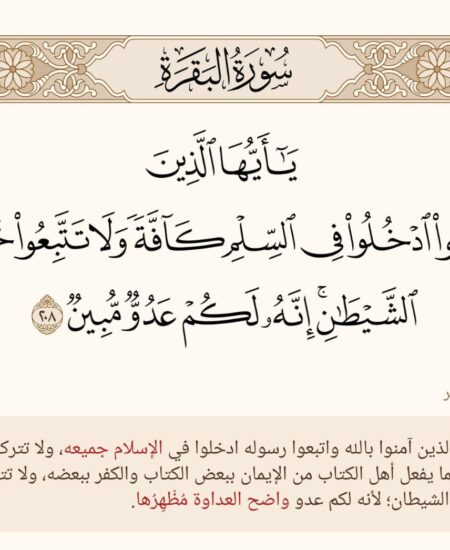 سُورَةُ البَقَرَةِ
يَـٰٓأَيُّهَا ٱلَّذِينَ
ٱدۡخُلُواْ فِي ٱلسِّلۡمِ كَآفَّةٗ وَلَا تَتَّبِعُواْ
ٱلشَّيۡطَٰنِۚ إِنَّهُۥ لَكُمۡ عَدُوّٞ مُّبِينٞ ٢٠٨
آمنوا بالله واتبعوا رسوله ادخلوا في الإسلام جميعه، ولا
يفعل أهل الكتاب من الإيمان ببعض الكتاب والكفر ببعضه، ولا
الشيطان؛ لأنه لكم عدو واضح العداوة مُظْهِرُها.